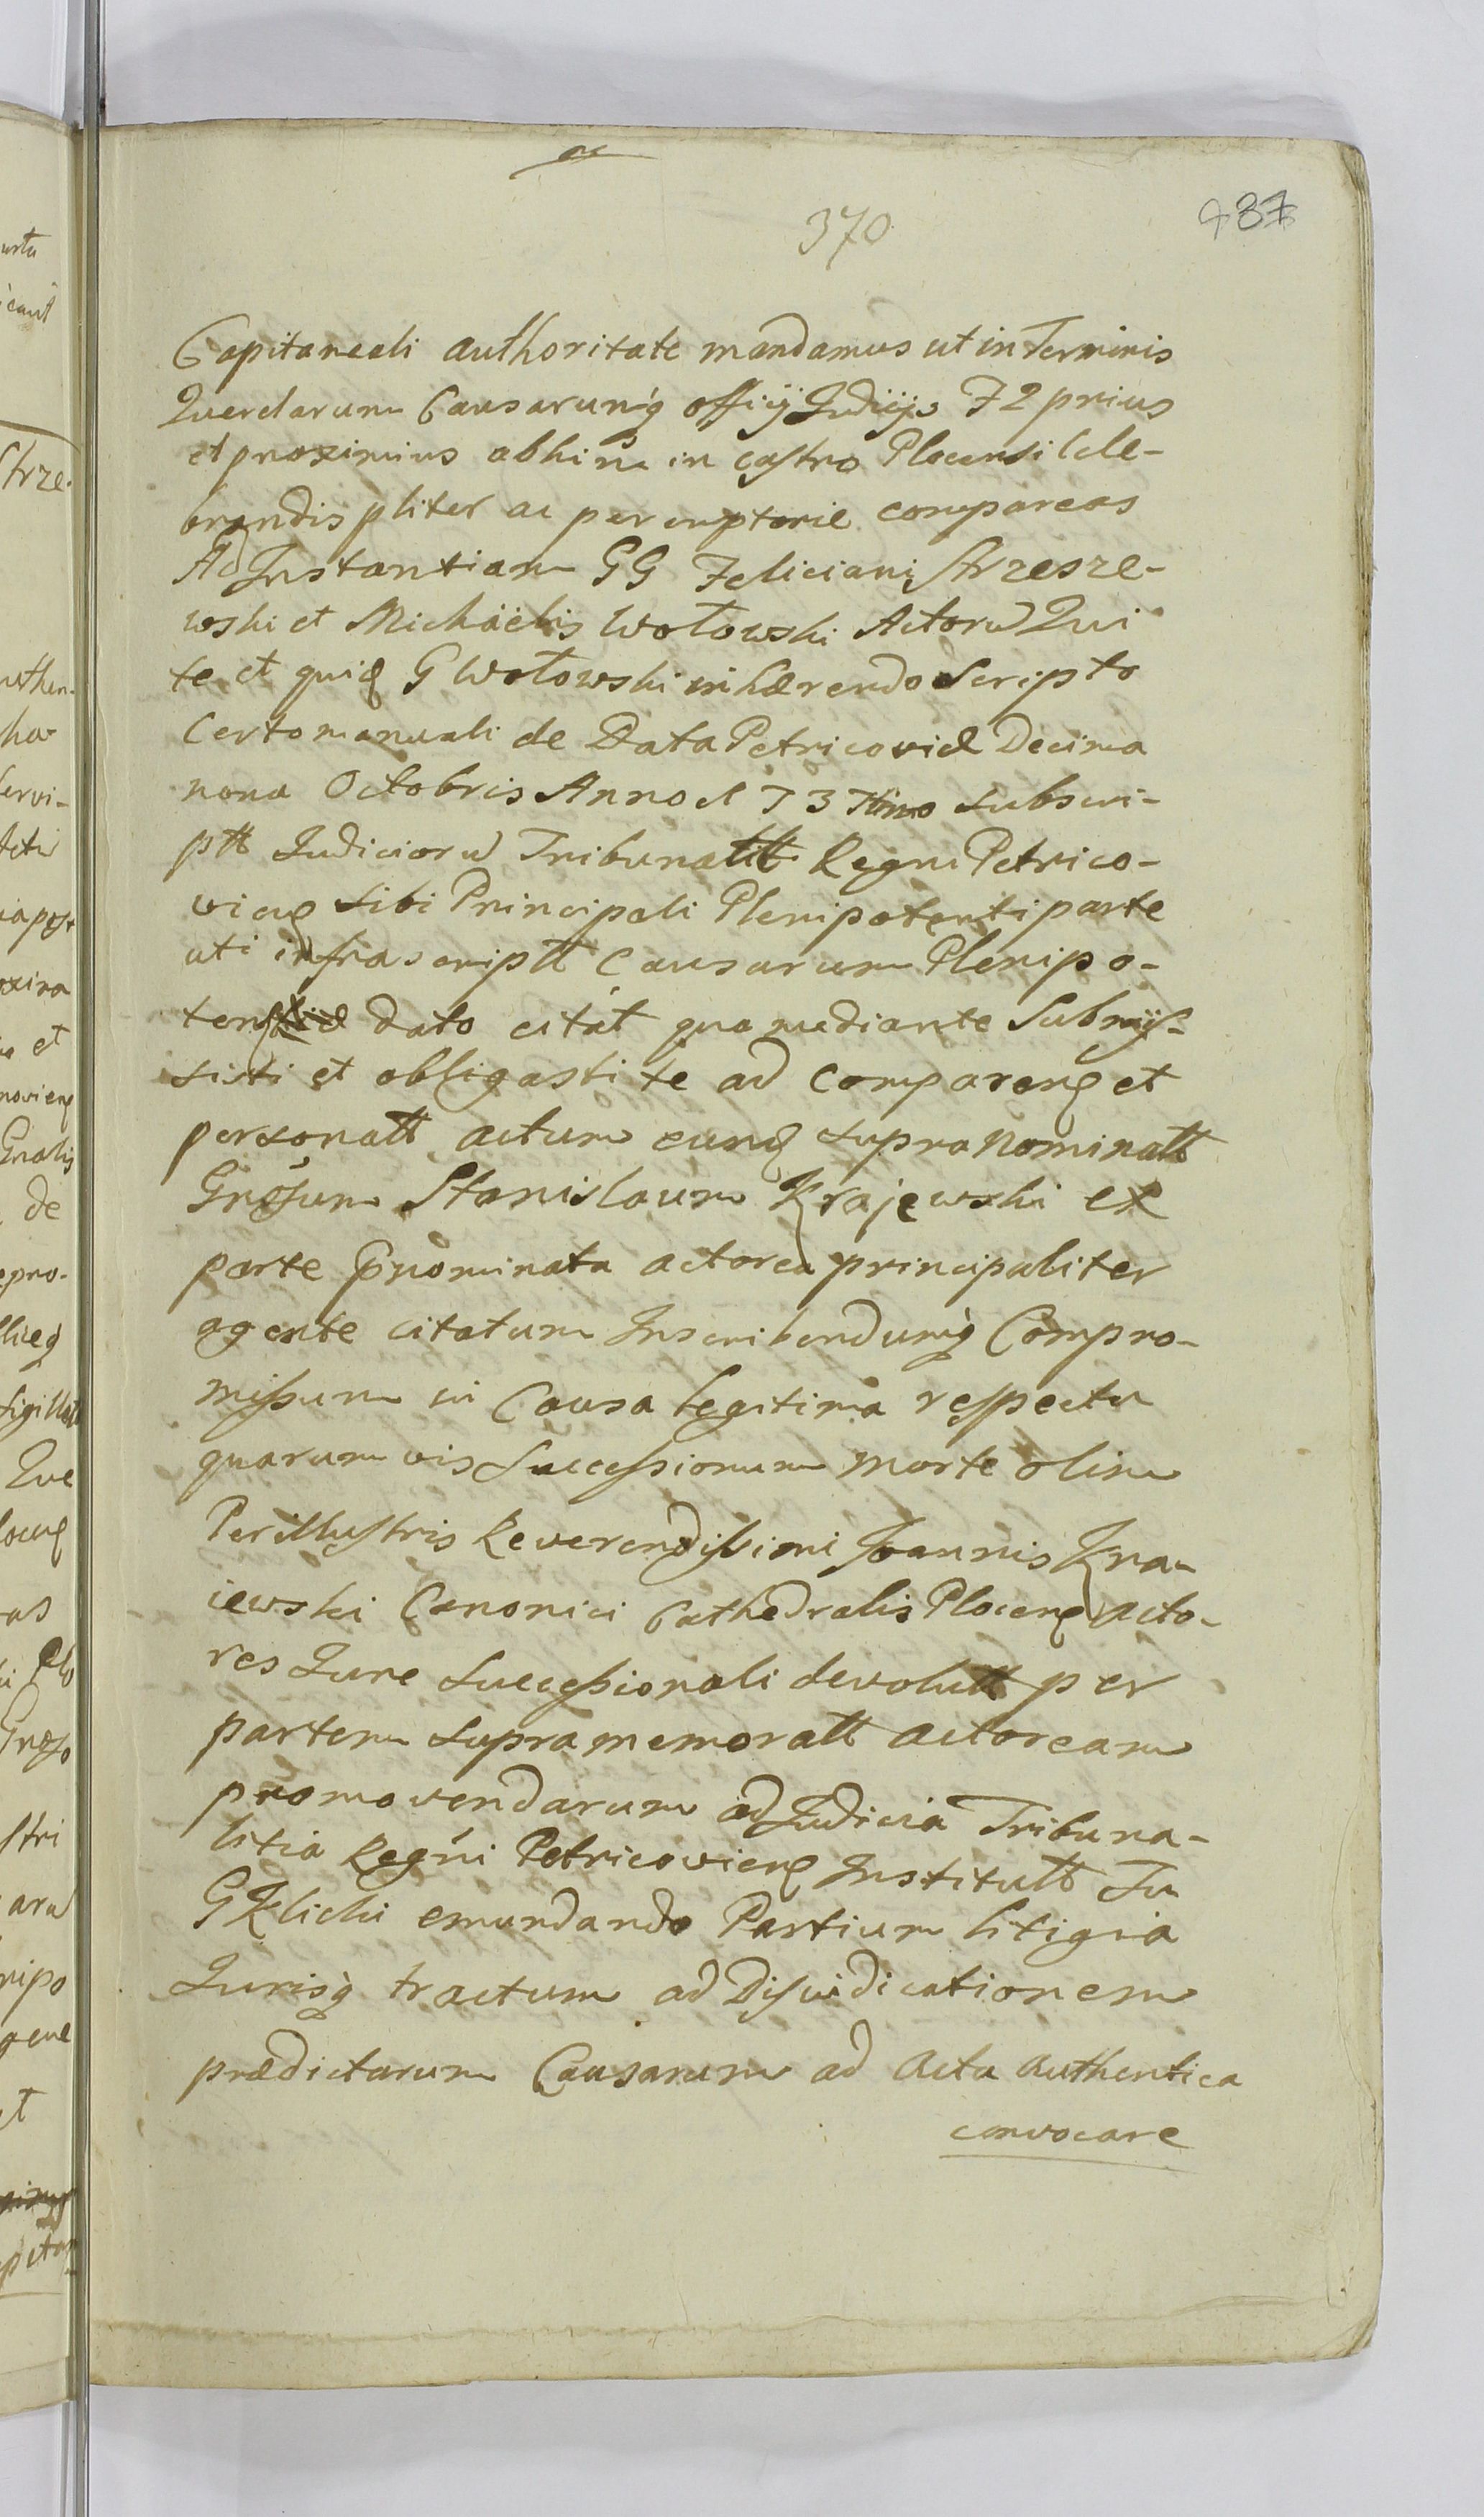 370
937
Capitaneali authoritate mandamus ut in Terminis
Querelarum Causarumq́ officij Judicijs F2 prius
et proximius abhinc in castro Plocensi Cele-
brandis pliter ac peremptorie compareas
Ad Instantiam GG Feliciani Strzesze-
wski et Michäelis Wołowski Actorū Qui
te et quidę G Wołowski inhærendo Scripto
Certo manuali de Data Petricoviæ Decima
nona Octobris Anno subscri-
ptt Judiciorū Tribunalitt Regni Petrico-
vien sibi Principali Plenipotenti parte
uti infrascriptt Causarum Plenipo-
dato citat quo mediante Submis-
sisti et obligasti te ad comparen et
personatt actum eund supranominatt
Grosum Stanislaum Krajewski ex
parte prænominata actorea principaliter
agente citatum Inscribendumq́ Compro-
missum in Causa legitima respectu
quarumvis Successionum morte olim
Perillustris Reverendissimi Joannis Kra-
iewski Canonici Cathedralis Plocen acto-
res Jure Successionali devolutt per
partem supra memoratt actoream
promovendarum ad Judicia Tribuna-
litia Regńi Petricovien Institutt Tu
G Klicki emundando Partium litigia
Jurisq́ tractum ad Disiudicationem
prædictarum Causarum ad Acta authentica
convocare